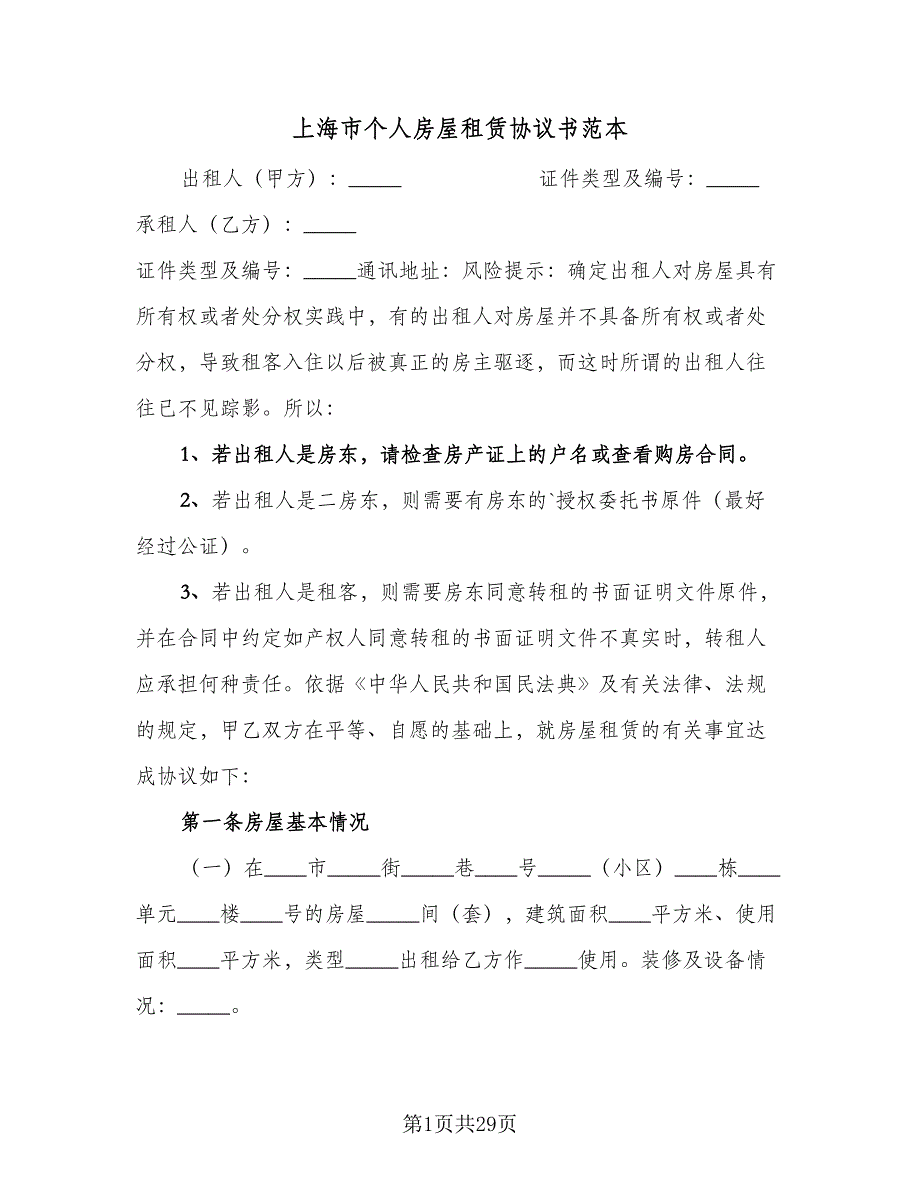 上海市个人房屋租赁协议书范本
出租人（甲方）：_____ 证件类型及编号：_____
承租人（乙方）：_____
证件类型及编号：_____通讯地址：风险提示：确定出租人对房屋具有
所有权或者处分权实践中，有的出租人对房屋并不具备所有权或者处
分权，导致租客入住以后被真正的房主驱逐，而这时所谓的出租人往
往已不见踪影。所以：
1、若出租人是房东，请检查房产证上的户名或查看购房合同。
2、若出租人是二房东，则需要有房东的`授权委托书原件（最好
经过公证）。
3、若出租人是租客，则需要房东同意转租的书面证明文件原件，
并在合同中约定如产权人同意转租的书面证明文件不真实时，转租人
应承担何种责任。依据《中华人民共和国民法典》及有关法律、法规
的规定，甲乙双方在平等、自愿的基础上，就房屋租赁的有关事宜达
成协议如下：
第一条房屋基本情况
（一）在____市_____街_____巷____号_____（小区）____栋____
单元____楼____号的房屋_____间（套），建筑面积____平方米、使用
面积____平方米，类型_____出租给乙方作_____使用。装修及设备情
况：_____。
第1页共29页